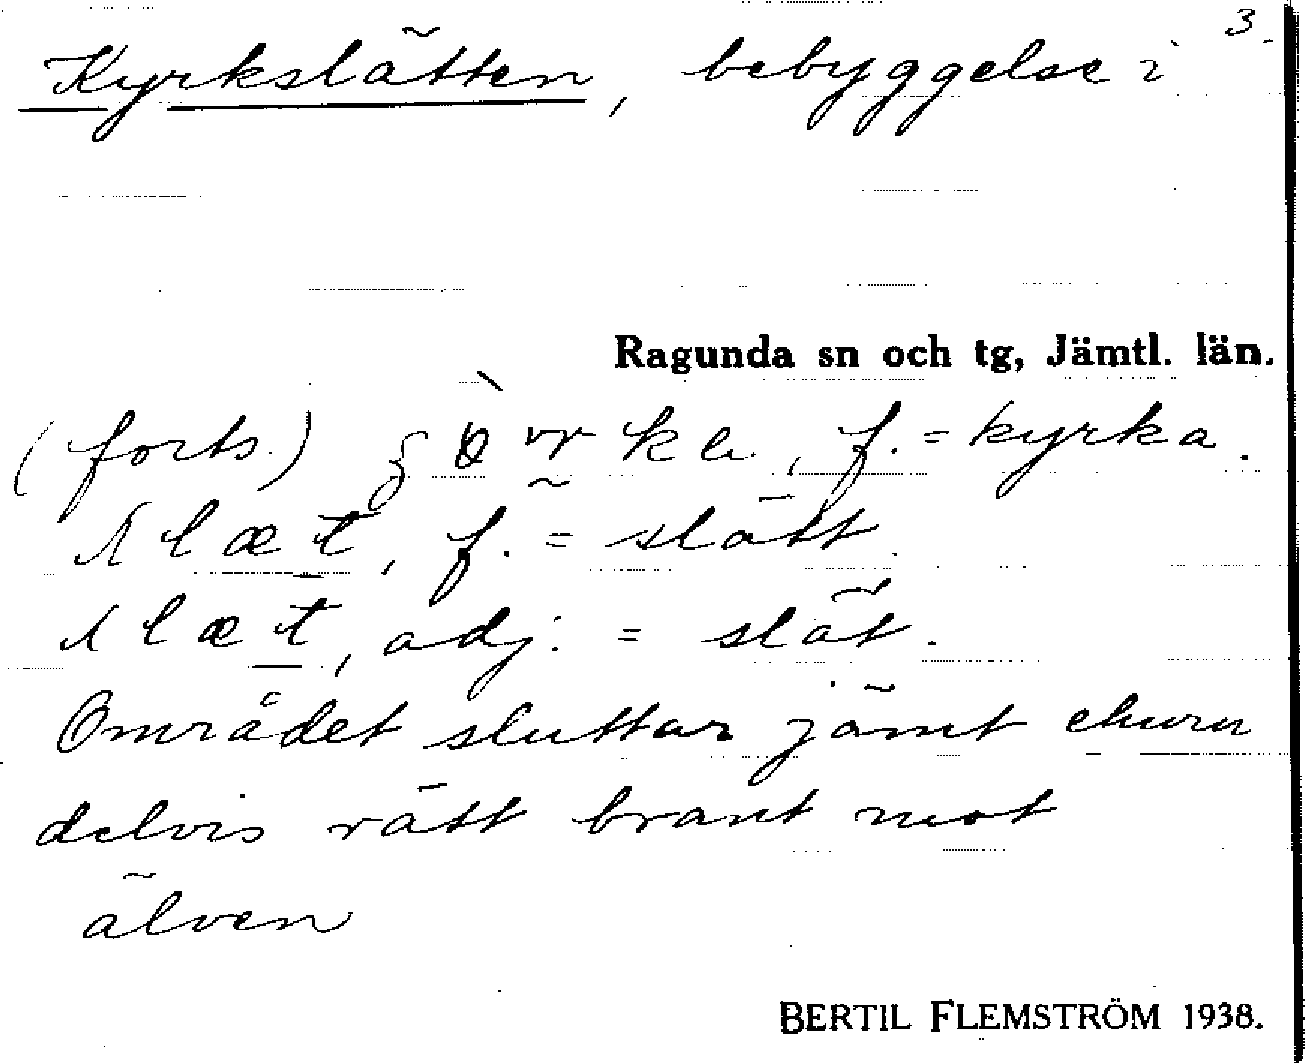 3.
Kyrkslätten, bebyggelse i
Ragunda sn och tg, Jämtl. län.
(forts.) f. = kyrka.
slæt, f. = slätt.
slæt, adj. = slät.
Området sluttar jämt ehuru
delvis rätt brant mot
älven
BERTIL FLEMSTRÖM 1938.